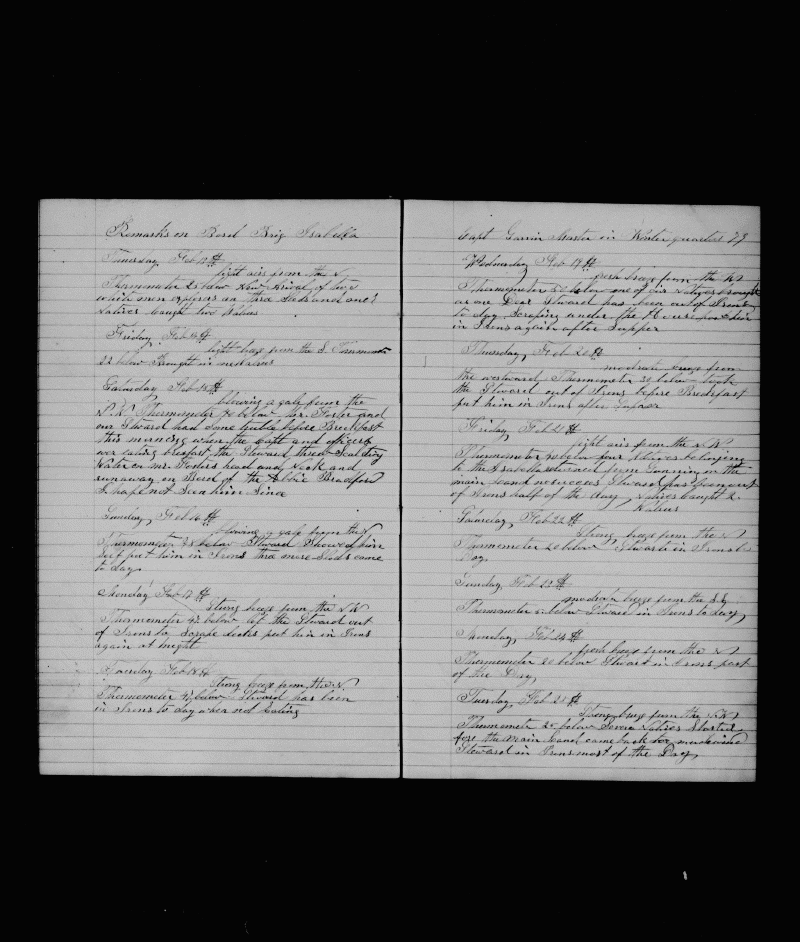 Remarks on Bord Brig Isabella
Thursday Feb 13th
light airs from the N
Thermometer 25 below New Arival of five
which men appears as thre Sleds and one
Natives caught two Walrus
Friday Feb 14th
light breeze from the S. Thermometer
22 below Brought in no Walrus
Saturday Feb 15th
blowing a gale from the
N.W. Thermometer below Mr. Foster and
our Steward had some trouble before Breakfast
this morning when the Capt and officers
were eating brekfast the Steward threw Scalding
Water on Mr. Fosters head and Neck and
runaway on Bord of the Abbie Bradford
I have not Seen him Since
Sunday, Feb 16th
blowing a gale from the N
Thermometer below Steward Showed him
Self put him in Irons thre more Sleds came
to day
Monday Feb 17th
Strong breeze from the N W
Thermometer 42 below let the Steward out
of Irons to Scrape decks put him in Irons
again at night
Tuesday Feb 18th
Strong breeze from the N
Thermometer below Steward has been
in Irons to day when not Eating
Capt Garvin Master in Winter quarters 79
Wednesday Feb 19th
fresh breeze from the N W
Thermometer below one of our Natives brought
us one Deer Steward has been out of Irons
to day Scraping under the House put him
in Irons again after Supper
Thursday, Feb 20th
moderate breeze from
the westward Thermometer 30 below took
the Steward out of Irons before Breakfast
put him in Irons after Supper
Friday, Feb 21st
light airs from the N W
Thermometer below four Natives belonging
to the Isabella returned from Gunning on the
main land no success Steward has been out
of Irons half of the day, Natives Caught 2
Walrus
Saturday, Feb 22th
Strong breeze from the N
Thermometer 20 below Steward in Irons to
Day,
Sunday Feb 23th
moderate breeze from the S.E.
Thermometer below Steward in Irons to day,
Monday, Feb 24th
fresh breeze from the N
Thermometer 20 below Steward in Irons part
of the Day,
Tuesday Feb 25th
Strong breeze from the N W
Thermometer 25 below Seven Natives Started
fore the Main land came back too much wind
Steward in Irons most of the Day,